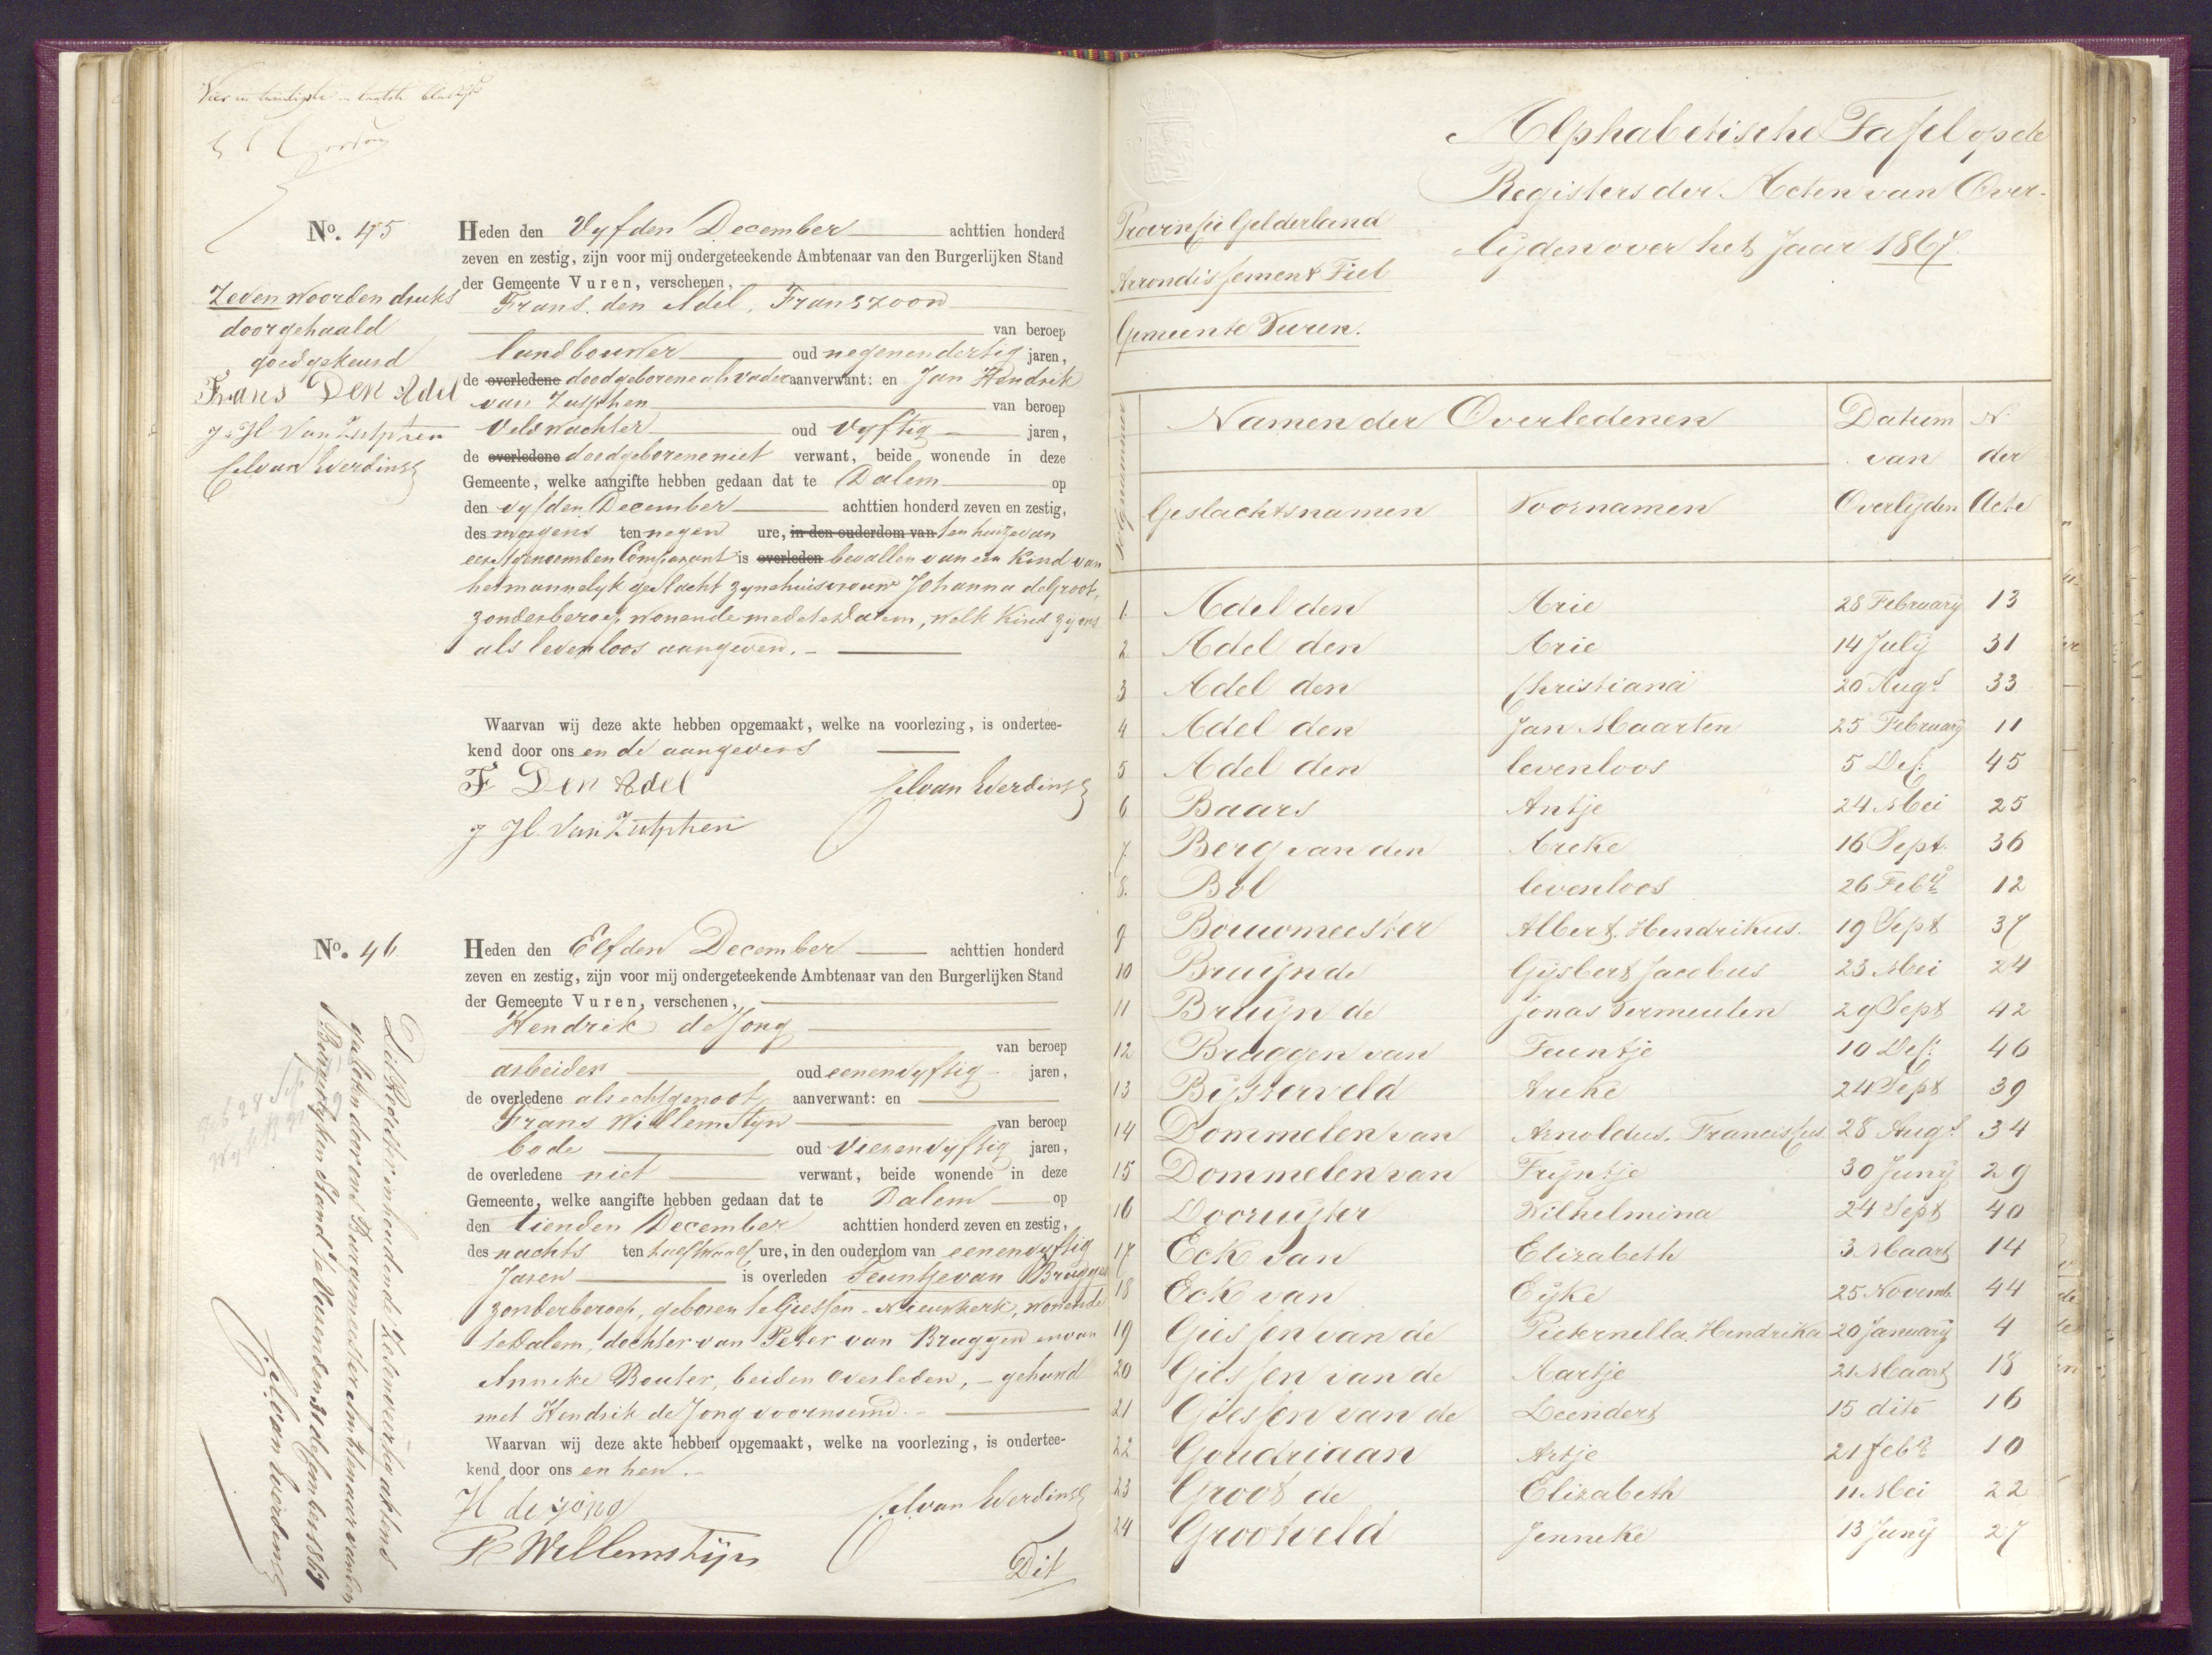 Vier en twintigste en laatste bladzijde
No. 45
Zeven woorden druks
doorgehaald
goedgekeurd
Frans Den Adel
J. H. Van Zutphen
Heden den Vyfden December achttien honderd
zeven en zestig, zijn voor mij ondergeteekende Ambtenaar van den Burgerlijken Stand
der Gemeente Vuren, verschenen,
Frans den Adel, Franszoon
van beroep
landbouwer oud negenendertig jaren,
de overledene doodgeborene als vader aanverwant: en Jan Hendrik
van Zutphen van beroep
Veldwachter oud Vyftig jaren,
de overledene doodgeborene niet verwant, beide wonende in deze
Gemeente, welke aangifte hebben gedaan dat te Dalem op
den vyfden December achttien honderd zeven en zestig,
des morgens ten negen ure, in den ouderdom van ten huize van
eerstgenoemden Comparant is overleden bevallen van een Kind van
het mannelyk geslacht zyne huisvrouw Johanna de Groot,
zonder beroep, wonende mede te Dalem, welk Kind zy ons
als levenloos aangeven.
Waarvan wij deze akte hebben opgemaakt, welke na voorlezing, is ondertee-
kend door ons en de aangevers
F Den Adel
J H. Van Zutphen
No. 46
Heden den Elfden December achttien honderd
zeven en zestig, zijn voor mij ondergeteekende Ambtenaar van den Burgerlijken Stand
der Gemeente Vuren, verschenen,
Hendrik de Jong
van beroep
arbeider oud eenenvyftig jaren,
de overledene als echtgenoot aanverwant: en
Frans Willemstyn van beroep
bode oud Vierenvyftig jaren,
de overledene niet verwant, beide wonende in deze
Gemeente, welke aangifte hebben gedaan dat te Dalem op
den tienden December achttien honderd zeven en zestig,
des nachts ten half twaalf ure, in den ouderdom van eenenvyftig
Jaren is overleden Teuntje van Bruggen
zonder beroep, geboren te Giessen-Nieuwkerk, wonende
te Dalem, dochter van Peter van Bruggen en van
Anneke Bouter, beiden overleden, – gehuwd
met Hendrik de Jong voornoemd.
Waarvan wij deze akte hebben opgemaakt, welke na voorlezing, is ondertee-
kend door ons en hen.
H de jong
F Willemstijn
Dit
Dit Register inhoudende Zesenveertig aktens
gesloten door ons Burgemeester Ambtenaar van den
Burgerlyken Stand te Vuren den 31 december 1867
Alphabetische Tafel op de
Registers der Acten van Over-
lijden over het Jaar 1867.
Provinsie Gelderland
Arrondissement Tiel
Gemeente Vuren.
Volgnummer
Namen der Overledenen
Datum van Overlijden
N. der Acte
Geslachtsnamen Voornamen
1. Adel den Arie 28 February 13
2 Adel den Arie 14 July 31
3 Adel den Christiana 20 Augt 33
4 Adel den Jan Maarten 25 February 11
5 Adel den levenloos 5 Dec: 45
6 Baars Antje 24 Mei 25
7 Berg van den Areke 16 Sept. 36
8. Bol levenloos 26 Feb 12
9 Bouwmeester Albert. Hendrikus. 19 Sept 37
10 Bruijn de Gijsbert Jacobus 23 Mei 24
11 Bruijn de Jonas Vermeulen 29 Sept 42
12 Bruggen van Teuntje 10 Dec: 46
13 Bijsterveld Areke 24 Sept 39
14 Dommelen van Arnoldus. Franciscus 28 Augt 34
15 Dommelen van Trijntje 30 Junij 29
16 Dooruijter Wilhelmina 24 Sept 40
17 Eck van Elizabeth 3 Maart 14
18 Eck van Eijke 25 Novemb. 44
19 Giessen van de Pieternella Hendrika 20 January 4
20 Giessen van de Aartje 21 Maart 18
21 Giessen van de Leendert 15 dito 16
22 Goudriaan Artje 21 feb 10
23 Groot de Elizabeth 11 Mei 22
24 Grootveld Jenneke 13 Junij 27